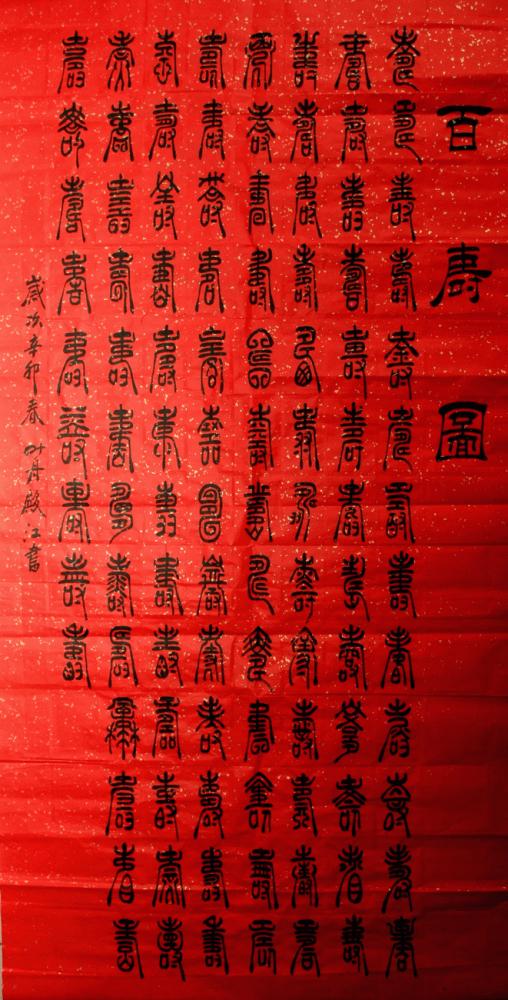 百寿圖
壽壽壽壽壽壽壽壽壽壽壽壽壽
壽壽壽壽壽壽壽壽壽壽壽壽壽
壽壽壽壽壽壽壽壽壽壽壽壽壽
壽壽壽壽壽壽壽壽壽壽壽壽壽
壽壽壽壽壽壽壽壽壽壽壽壽壽
壽壽壽壽壽壽壽壽壽壽壽壽壽
壽壽壽壽壽壽壽壽壽壽壽壽壽
壽壽壽壽壽壽壽壽壽
歲次辛卯春 江書